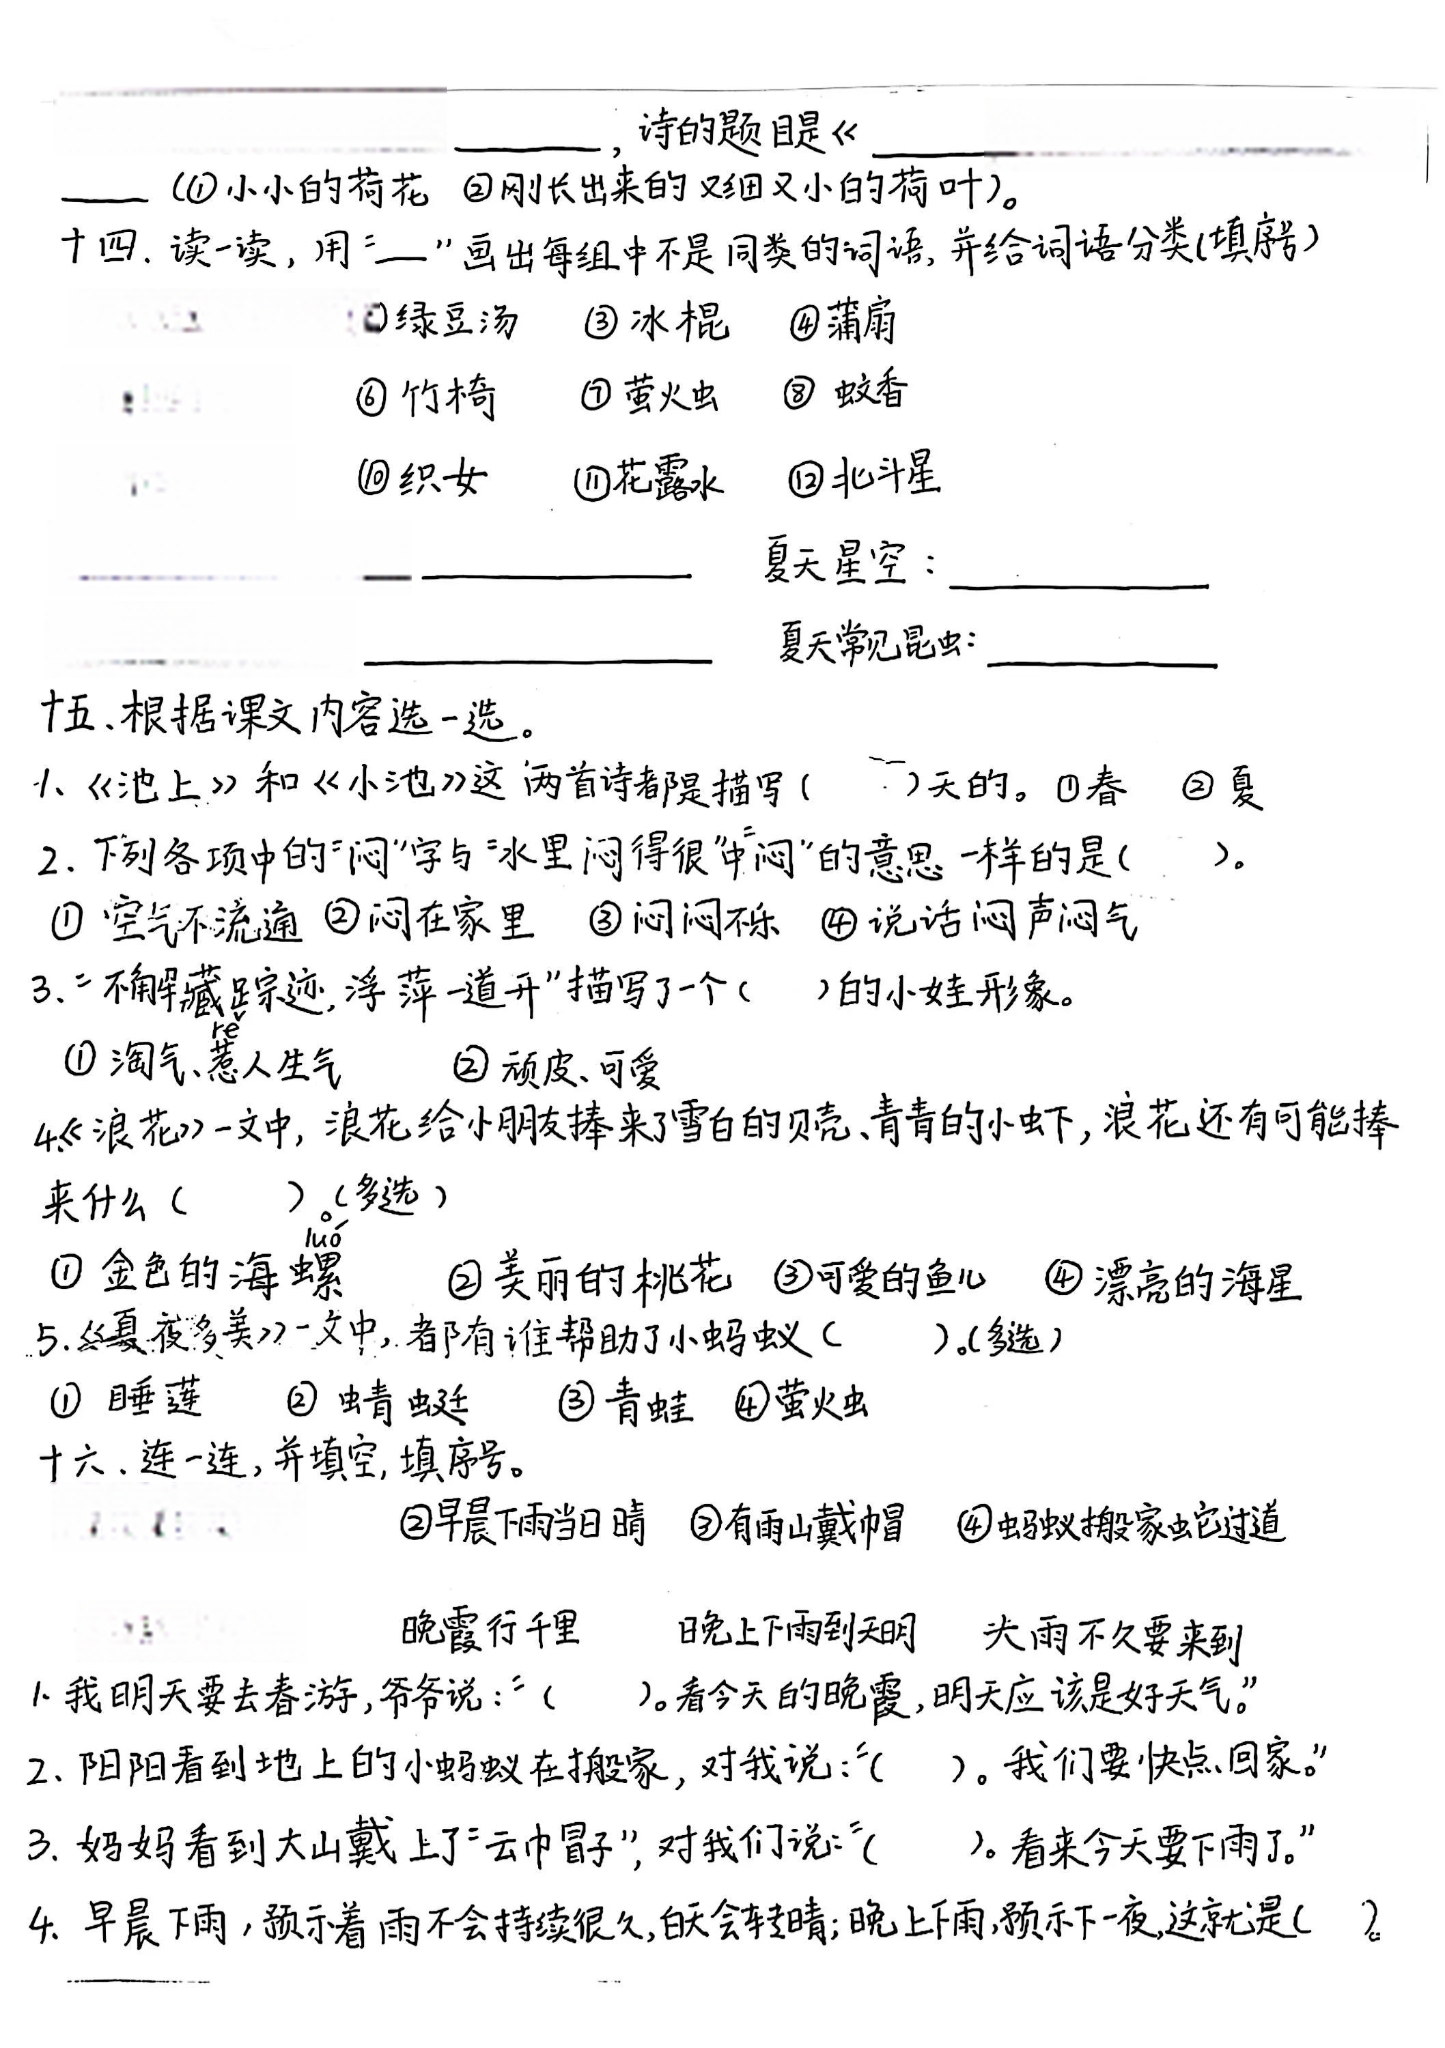 ，诗的题目是《
（①小小的荷花 ②刚长出来的又细又小的荷叶）。
十四、读一读，用“__”画出每组中不是同类的词语，并给词语分类（填序号）
绿豆汤 ③冰棍 ④蒲扇
⑥竹椅 ⑦萤火虫 ⑧蚊香
⑩织女 ⑪花露水 ⑫北斗星
夏天星空：
夏天常见昆虫：
十五、根据课文内容选一选。
1、《池上》和《小池》这两首诗都是描写（ ）天的。①春 ②夏
2、下列各项中的“闷”字与“水里闷得很”中“闷”的意思一样的是（ ）。
①空气不流通 ②闷在家里 ③闷闷不乐 ④说话闷声闷气
3、“不解藏踪迹，浮萍一道开”描写了一个（ ）的小娃形象。
rě
①淘气、惹人生气 ②顽皮、可爱
4、《浪花》一文中，浪花给小朋友捧来了雪白的贝壳、青青的小虾，浪花还有可能捧
来什么（ ）。（多选）
luó
①金色的海螺 ②美丽的桃花 ③可爱的鱼儿 ④漂亮的海星
5.《夏夜多美》一文中，都有谁帮助了小蚂蚁（ ）。（多选）
①睡莲 ②蜻蜓 ③青蛙 ④萤火虫
十六、连一连，并填空，填序号。
②早晨下雨当日晴 ③有雨山戴帽 ④蚂蚁搬家蛇过道
晚霞行千里 晚上下雨到天明 大雨不久要来到
1、我明天要去春游，爷爷说：“（ ）。看今天的晚霞，明天应该是好天气。”
2、阳阳看到地上的小蚂蚁在搬家，对我说：“（ ）。我们要快点回家。”
3、妈妈看到大山戴上了“云巾冒子”，对我们说：“（ ）。看来今天要下雨了。”
4、早晨下雨，预示着雨不会持续很久，白天会转晴；晚上下雨，预示下一夜，这就是（ ）。